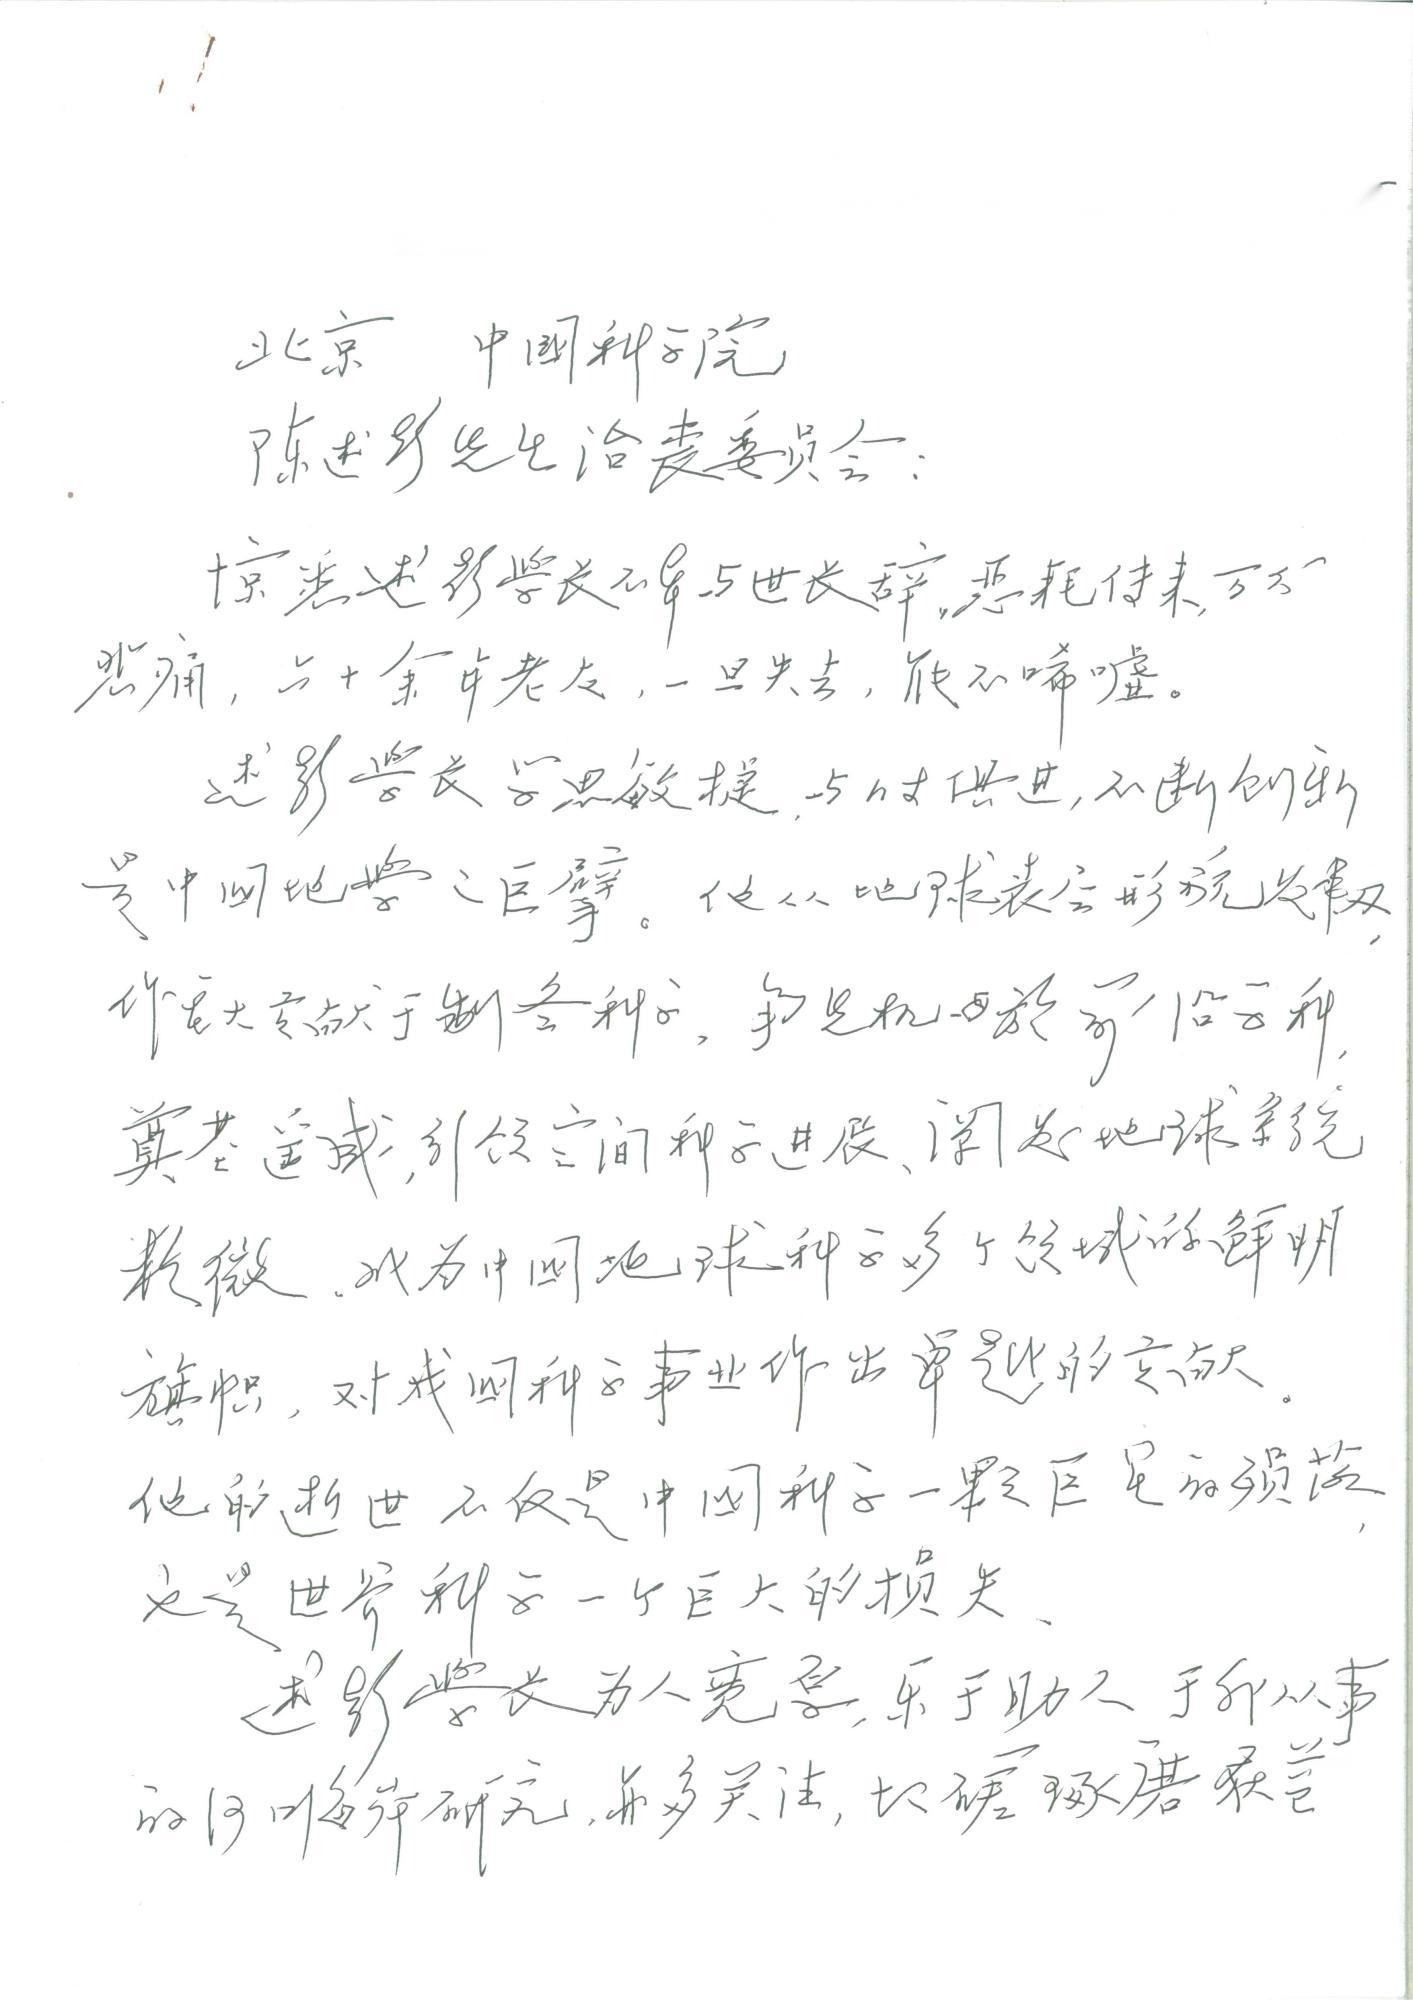 北京 中国科学院
陈述彭先生治丧委员会:
惊悉述彭學长不幸与世长辞,恶耗传来,万分
悲痛,六十余年老友,一旦失去,能不唏嘘。
述彭學长学思敏捷,与时俱进,不断创新
是中国地學之巨擘。他从地球表层形貌发轫,
作重大贡献于制图科学,争先机与於前沿学科,
奠基遥感,引领空间科学进展、阐发地球系统
数微,成为中国地球科学多个领域的鲜明
旗帜,对我国科学事业作出卓越的贡献。
他的逝世不仅是中国科学一颗巨星的殒落,
也是世界科学一个巨大的损失、
述彭學长为人宽厚,乐于助人 于所从事
的河口海岸研究,亦多关注,切磋琢磨获益